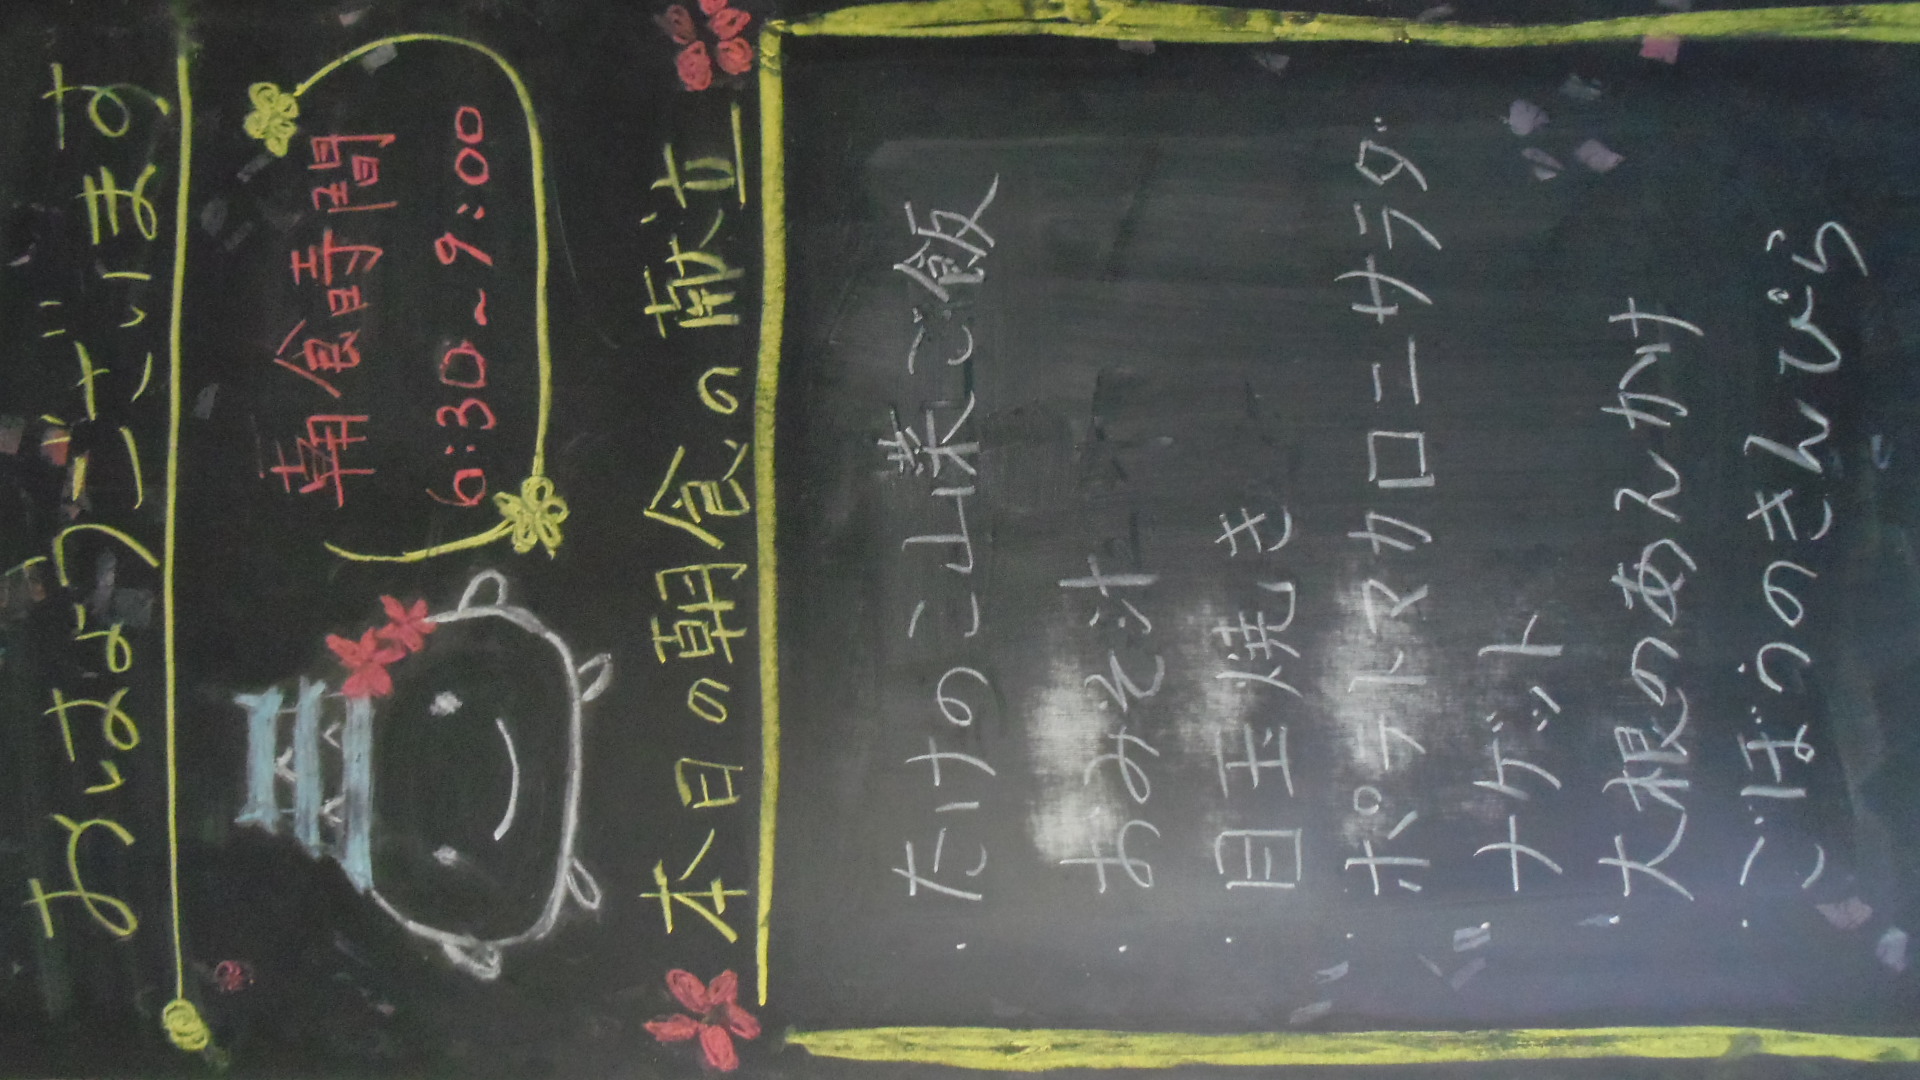 おはようございます
朝食時間
6:30~9:00
本日の朝食の献立
・たけのこ山菜ご飯
・おみそ汁
・目玉焼き
・ポテトマカロニサラダ
ナゲット
・大根のあんかけ
・ごぼうのきんぴら